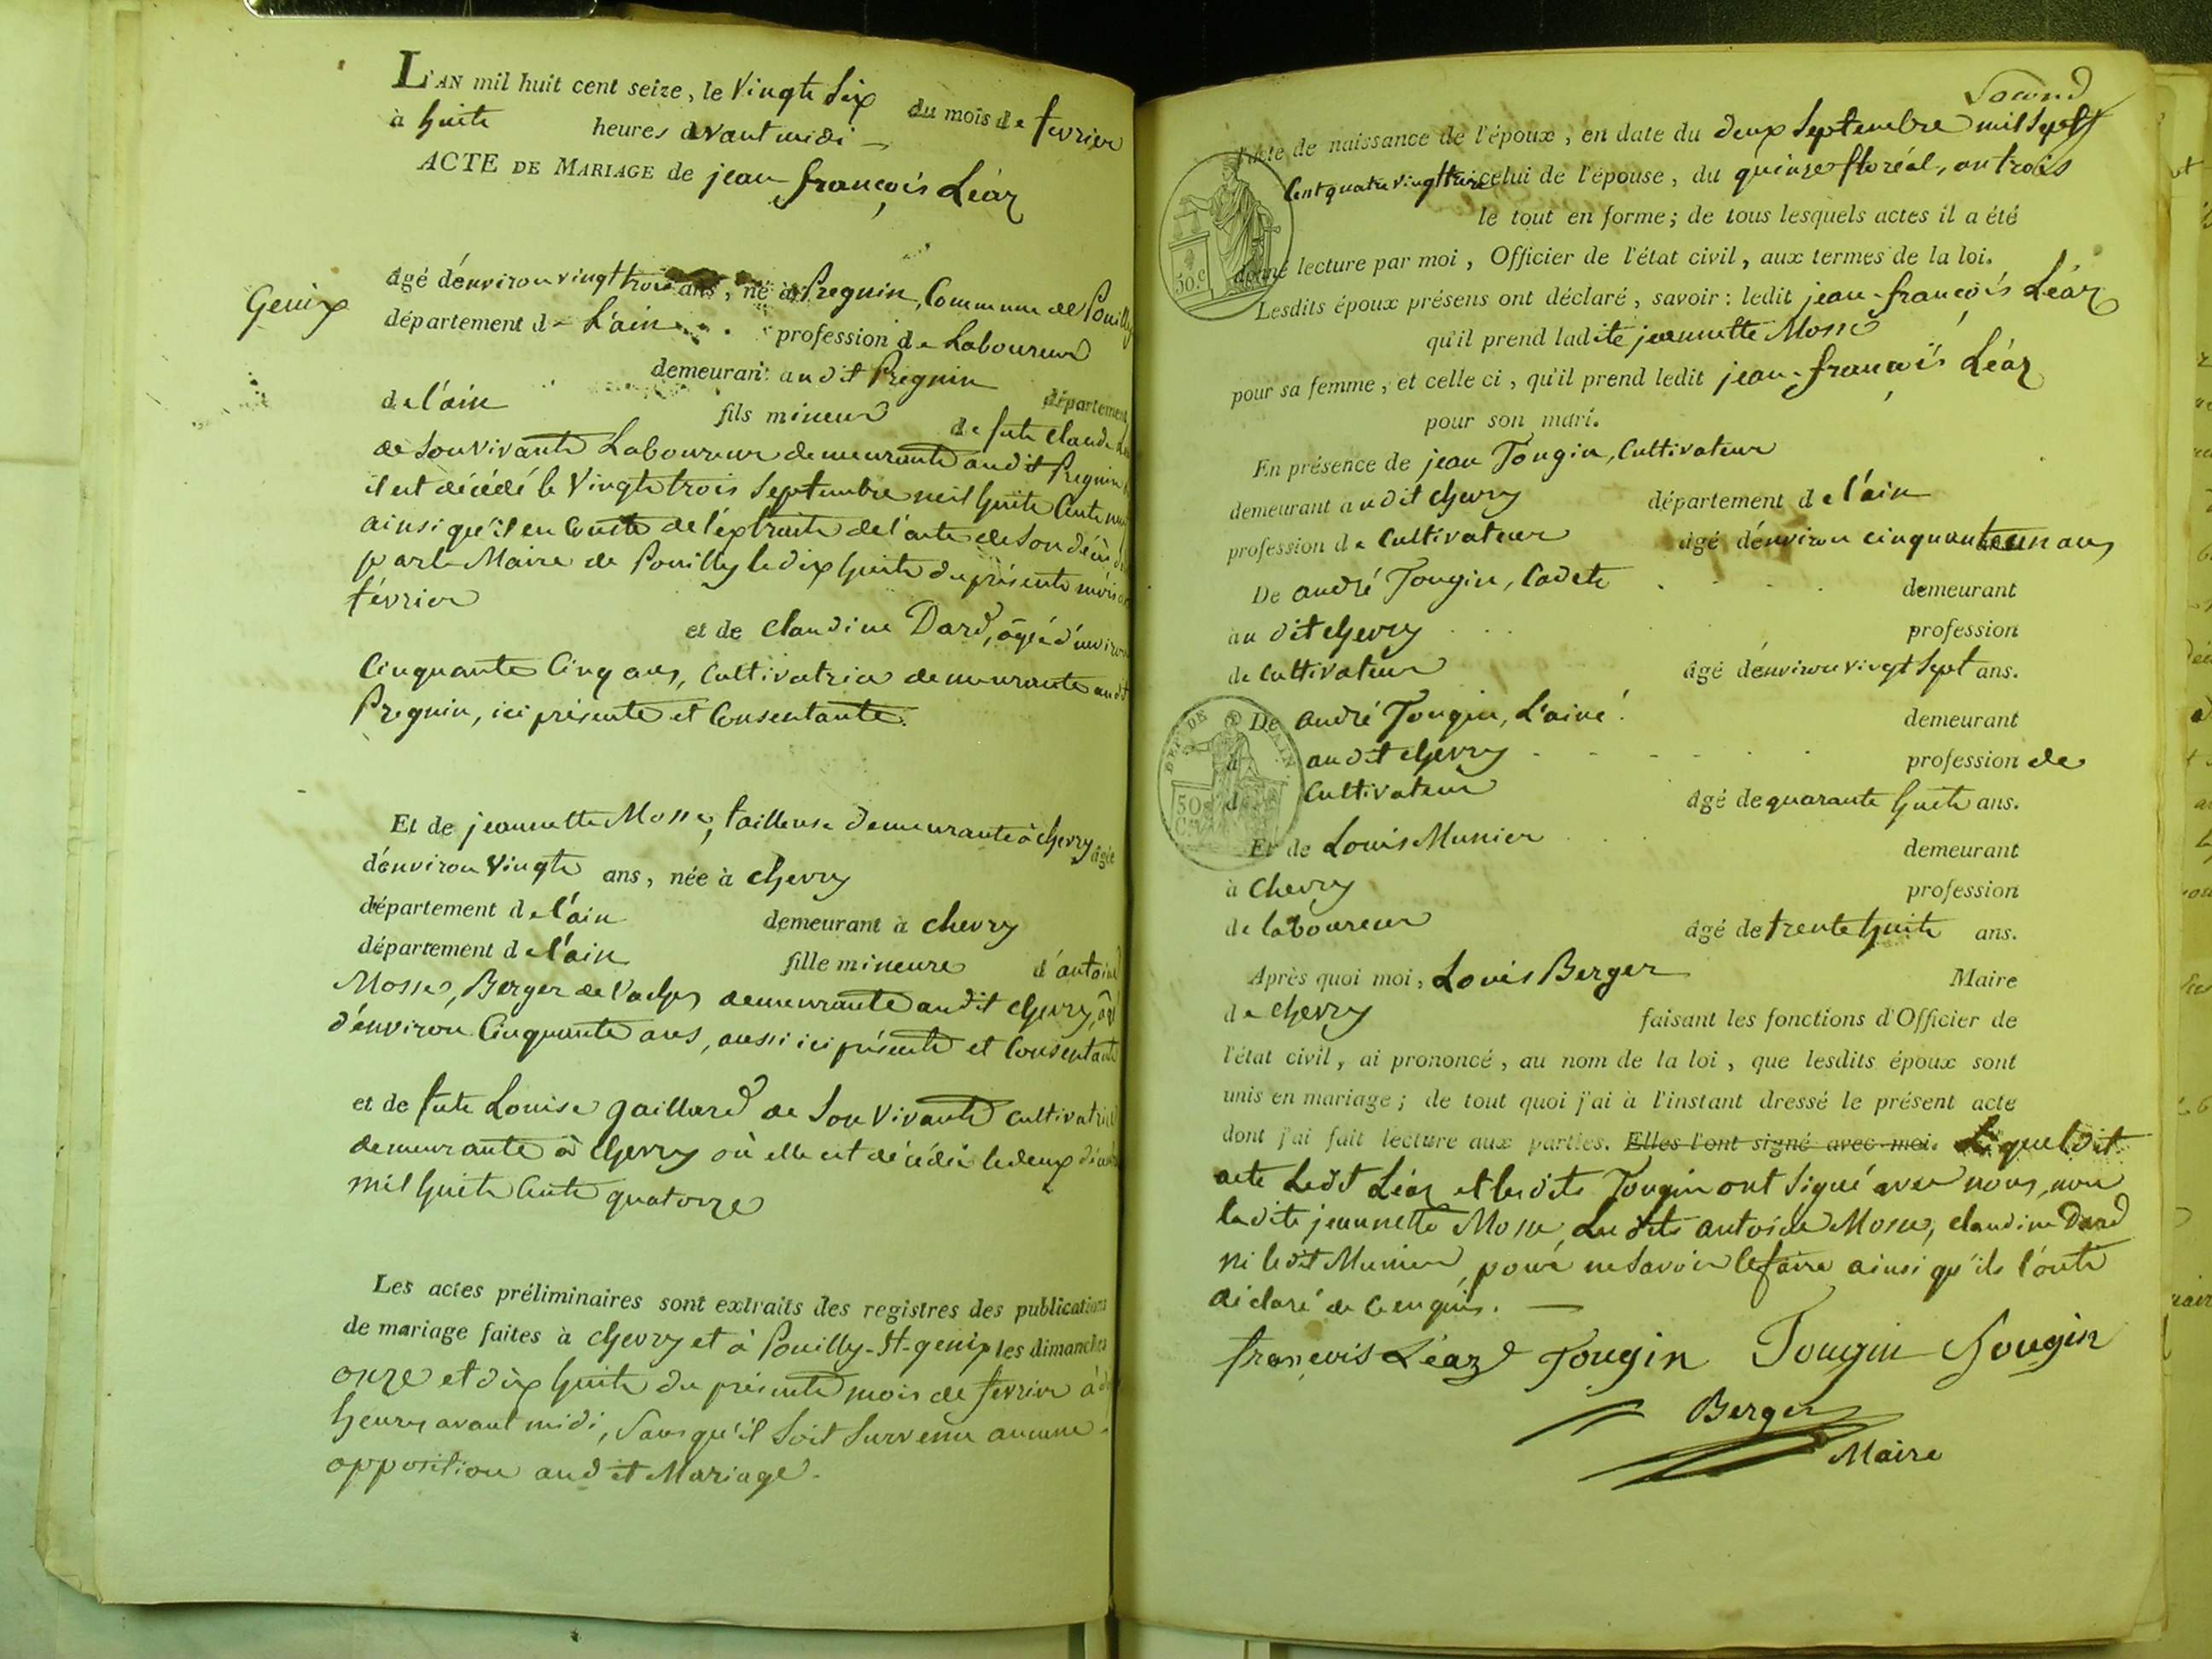 L'AN mil huit cent seize, le Vingt Six du mois de fevrier
à huit heures avant midi
ACTE DE MARIAGE de jean françois Léaz
âgé d'énviron vingt trois ans, né à Pregnin, Commune de Pouilly
Genix
département de L'ain profession de Laboureur
demeurant audit Pregnin département
de l'ain fils mineur de feu Claude
de Son Vivant Laboureur demeurant audit Pregnin
il est décédé le Vingt trois Septembre mil huit Cent
ainsi qu'il en Conste de l'extrait de l'acte de Son décès
par le Maire de Pouilly le dix huit du présent mois
février
et de Claudine Dard, âgée d'environ
Cinquante Cinq ans, Cultivatrice demeurante audit
Pregnin, ici présente et Consentante.
Et de jeannette Mosse, tailleuse demeurante à chevry âgée
d'énviron Vingt ans, née à chevry
département de l'ain demeurant à chevry
département de l'ain fille mineure d'antoine
Mosse, Berger de Vaches demeurant audit chevry,
d'énviron Cinquante ans, aussi ici présent et Consentant
et de fute Louise gaillard de Son Vivant Cultivatrice
demeurante à chevry où elle est décédée le deux
mil huit Cent quatorze
Les actes préliminaires sont extraits des registres des publications
de mariage faites à chevry et à Pouilly-St-genix les dimanches
onze et dix huit du présent mois de fevrier à
heures avant midi, Sans qu'il Soit Survenu aucune
opposition audit Mariage.
Second
l'acte de naissance de l'époux, en date du deux Septembre mil Sept
Cent quatre vingt treize celui de l'épouse, du quinze floréal, an trois
le tout en forme; de tous lesquels actes il a été
donné lecture par moi, Officier de l'état civil, aux termes de la loi.
50.c
Lesdits époux présens ont déclaré, savoir: ledit jean-françois Léaz
qu'il prend ladite jeannette Mosse
pour sa femme, et celle ci, qu'il prend ledit jean-françois Léaz
pour son mari.
En présence de jean Tougin, Cultivateur
demeurant audit chevry département de l'ain
profession de Cultivateur âgé d'énviron cinquante un ans
De andré Tougin, Cadet demeurant
audit chevry profession
de Cultivateur âgé d'énviron vingt Sept ans.
De andré Tougin, L'ainé demeurant
à audit chevry profession de
DEP. DE L'AIN
50 C.
de Cultivateur âgé de quarante huit ans.
Et de Louis Munier demeurant
à Chevry profession
de laboureur âgé de trente huit ans.
Après quoi moi, Louis Berger Maire
de chevry faisant les fonctions d'Officier de
l'état civil, ai prononcé, au nom de la loi, que lesdits époux sont
unis en mariage; de tout quoi j'ai à l'instant dressé le présent acte
dont j'ai fait lecture aux parties. Elles l'ont signé avec moi. Lequeldit
acte Ledit Léaz et lesdits Tougin ont Signé avec nous, non
ladite jeannette Mosse, Lesdits antoine Mosse, Claudine Dard
ni ledit Munier, pour ne Savoir le faire ainsi qu'ils l'ont
déclaré de Ce enquis.
françois Léaz Tougin Tougin Tougin
Berger
Maire